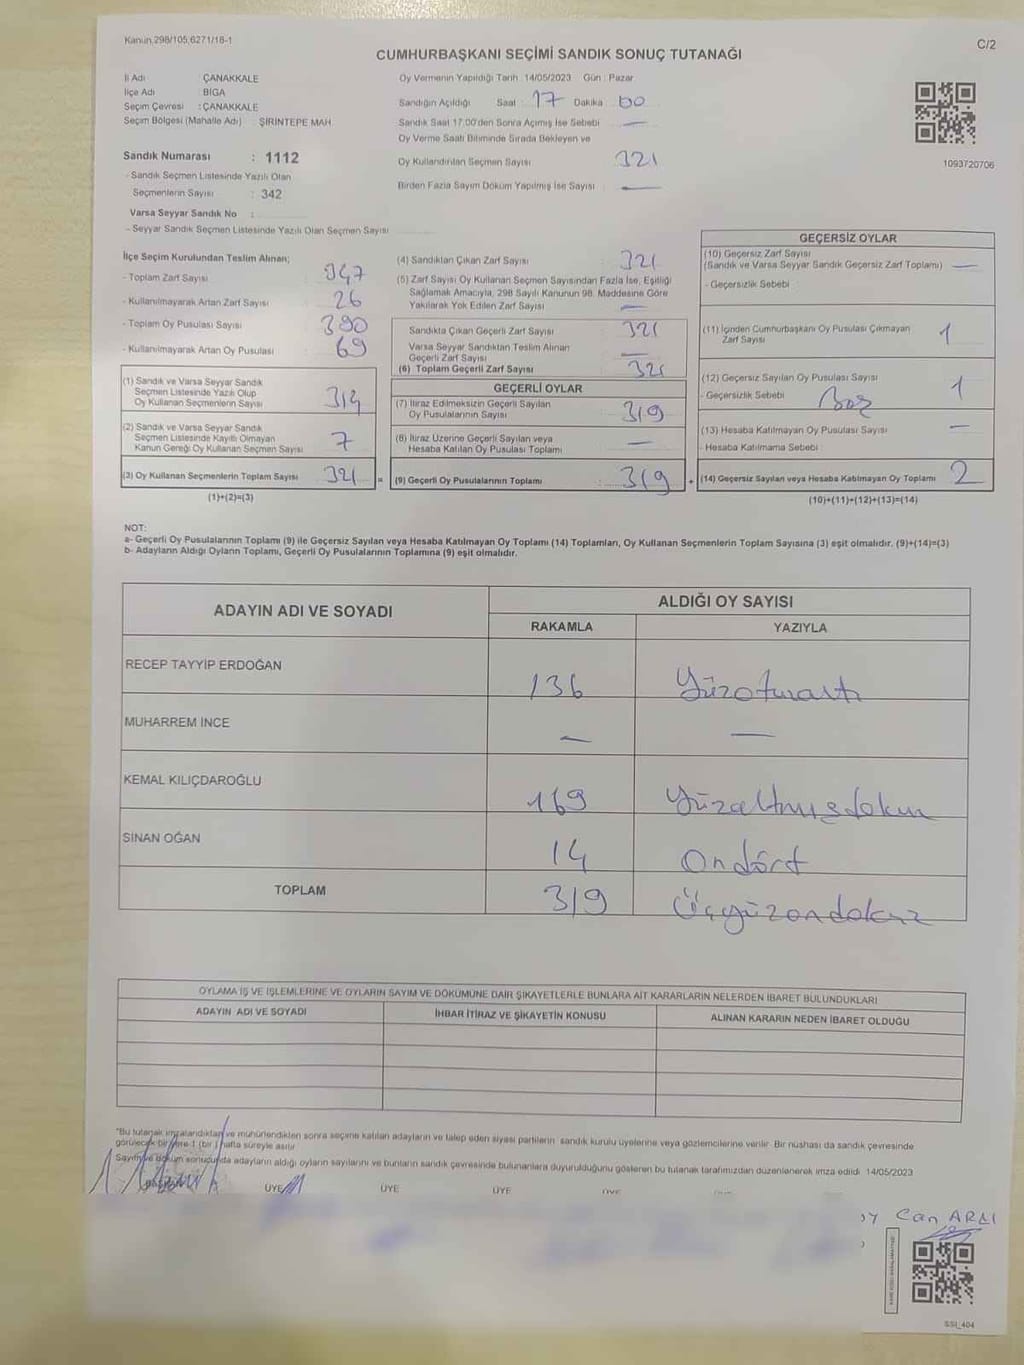 Kanun.298/105,6271/18-1
C/2
CUMHURBAŞKANI SEÇİMİ SANDIK SONUÇ TUTANAĞI
İl Adı : ÇANAKKALE
İlçe Adı : BİGA
Seçim Çevresi : ÇANAKKALE
Seçim Bölgesi (Mahalle Adı) : ŞİRİNTEPE MAH.
Sandık Numarası : 1112
- Sandık Seçmen Listesinde Yazılı Olan
Seçmenlerin Sayısı : 342
Varsa Seyyar Sandık No :
- Seyyar Sandık Seçmen Listesinde Yazılı Olan Seçmen Sayısı
Oy Vermenin Yapıldığı Tarih : 14/05/2023 Gün : Pazar
Sandığın Açıldığı Saat 17 Dakika 00
Sandık Saat 17.00'den Sonra Açımış İse Sebebi —
Oy Verme Saati Bitiminde Sırada Bekleyen ve
Oy Kullandırılan Seçmen Sayısı 321
Birden Fazla Sayım Döküm Yapılmış İse Sayısı —
1093720706
İlçe Seçim Kurulundan Teslim Alınan;
- Toplam Zarf Sayısı 347
- Kullanılmayarak Artan Zarf Sayısı 26
- Toplam Oy Pusulası Sayısı 390
- Kullanılmayarak Artan Oy Pusulası 69
(1) Sandık ve Varsa Seyyar Sandık
Seçmen Listesinde Yazılı Olup
Oy Kullanan Seçmenlerin Sayısı 314
(2) Sandık ve Varsa Seyyar Sandık
Seçmen Listesinde Kayıtlı Olmayan
Kanun Gereği Oy Kullanan Seçmen Sayısı 7
(3) Oy Kullanan Seçmenlerin Toplam Sayısı 321 =
(1)+(2)=(3)
(4) Sandıktan Çıkan Zarf Sayısı 321
(5) Zarf Sayısı Oy Kullanan Seçmen Sayısından Fazla İse, Eşitliği
Sağlamak Amacıyla, 298 Sayılı Kanunun 98. Maddesine Göre
Yakılarak Yok Edilen Zarf Sayısı —
Sandıkta Çıkan Geçerli Zarf Sayısı 321
Varsa Seyyar Sandıktan Teslim Alınan
Geçerli Zarf Sayısı —
(6) Toplam Geçerli Zarf Sayısı 321
GEÇERLİ OYLAR
(7) İtiraz Edilmeksizin Geçerli Sayılan
Oy Pusulalarının Sayısı 319
(8) İtiraz Üzerine Geçerli Sayılan veya
Hesaba Katılan Oy Pusulası Toplamı —
(9) Geçerli Oy Pusulalarının Toplamı 319 +
GEÇERSİZ OYLAR
(10) Geçersiz Zarf Sayısı
(Sandık ve Varsa Seyyar Sandık Geçersiz Zarf Toplamı) —
- Geçersizlik Sebebi
(11) İçinden Cumhurbaşkanı Oy Pusulası Çıkmayan
Zarf Sayısı 1
(12) Geçersiz Sayılan Oy Pusulası Sayısı 1
- Geçersizlik Sebebi Boş
(13) Hesaba Katılmayan Oy Pusulası Sayısı —
- Hesaba Katılmama Sebebi
(14) Geçersiz Sayılan veya Hesaba Katılmayan Oy Toplamı 2
(10)+(11)+(12)+(13)=(14)
NOT:
a- Geçerli Oy Pusulalarının Toplamı (9) ile Geçersiz Sayılan veya Hesaba Katılmayan Oy Toplamı (14) Toplamları, Oy Kullanan Seçmenlerin Toplam Sayısına (3) eşit olmalıdır. (9)+(14)=(3)
b- Adayların Aldığı Oyların Toplamı, Geçerli Oy Pusulalarının Toplamına (9) eşit olmalıdır.
ADAYIN ADI VE SOYADI ALDIĞI OY SAYISI
RAKAMLA YAZIYLA
RECEP TAYYİP ERDOĞAN 136 Yüzotuzaltı
MUHARREM İNCE — —
KEMAL KILIÇDAROĞLU 169 Yüzaltmışdokuz
SİNAN OĞAN 14 Ondört
TOPLAM 319 Üçyüzondokuz
OYLAMA İŞ VE İŞLEMLERİNE VE OYLARIN SAYIM VE DÖKÜMÜNE DAİR ŞİKAYETLERLE BUNLARA AİT KARARLARIN NELERDEN İBARET BULUNDUKLARI
ADAYIN ADI VE SOYADI İHBAR İTİRAZ VE ŞİKAYETİN KONUSU ALINAN KARARIN NEDEN İBARET OLDUĞU
"Bu tutanak imzalandıktan ve mühürlendikten sonra seçime katılan adayların ve talep eden siyasi partilerin sandık kurulu üyelerine veya gözlemcilerine verilir. Bir nüshası da sandık çevresinde
görülecek bir yere 1 (bir ) hafta süreyle asılır
Sayım ve döküm sonucunda adayların aldığı oyların sayılarını ve bunların sandık çevresinde bulunanlara duyurulduğunu gösteren bu tutanak tarafımızdan düzenlenerek imza edildi. 14/05/2023
ÜYE ÜYE ÜYE
Can ARAI
SSI_404